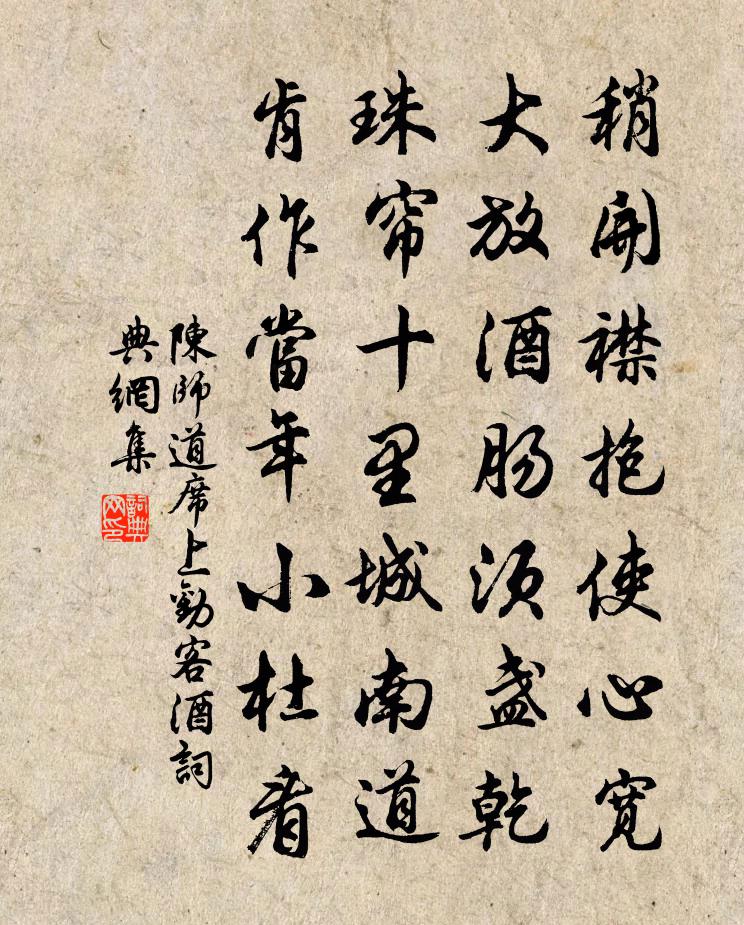 稍開襟抱使心寬
大放酒腸須盞乾
珠帘十里城南道
肯作當年小杜看
陳師道席上勸客酒詞
典網集
詞典網印